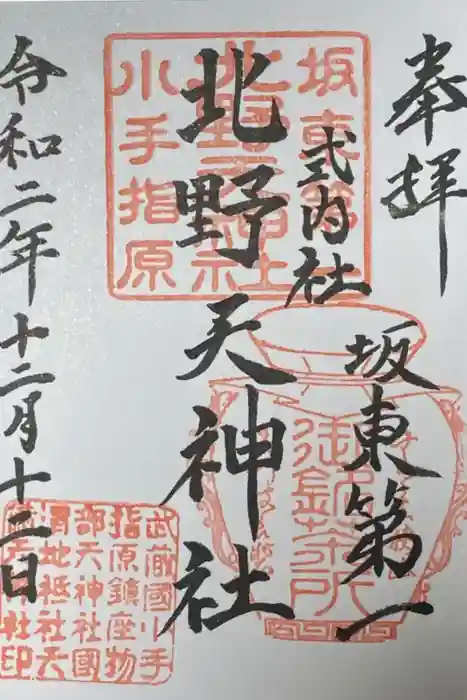 奉拝
坂東第一
式内社
北野天神社
令和二年十二月十二日
坂東第一
北野天神社
小手指原
御茶所
武蔵國小手
指原鎮座物
部天神社國
渭地祇社天